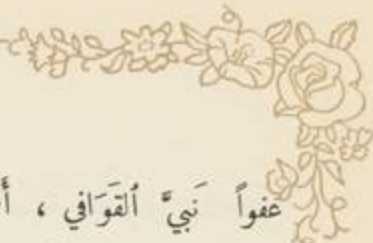 عفواً نَبيَّ ٱلقَوَافي ،